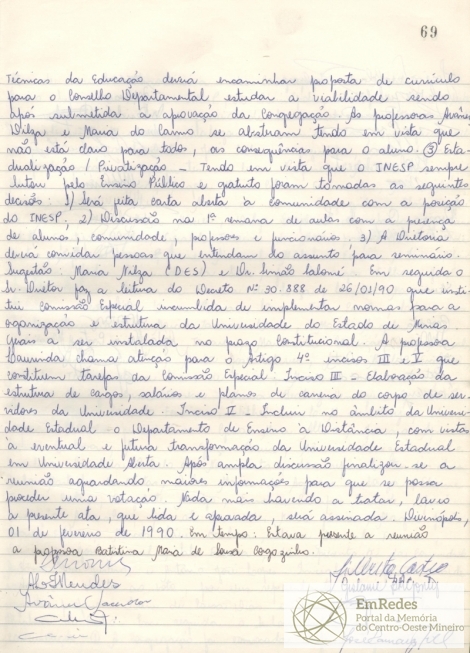 69
Técnicas da Educação deverá encaminhar proposta de currículo
para o Conselho Departamental estudar a viabilidade sendo
após submetida a aprovação da Congregação. As professoras
Nilza e Maria do Carmo se abstiram tendo em vista que
não está claro para todos, as consequências para o aluno. ③ Esta-
dualização / Privatização - Tendo em vista que o INESP sempre
lutou pelo Ensino Público e gratuito foram tomadas as seguintes
decisões: 1) Será feita carta aberta à comunidade com a posição
do INESP, 2) Discussão na 1ª semana de aulas com a presença
de alunos, comunidade, professores e funcionários, 3) A Diretoria
deverá convidar pessoas que entendam do assunto para seminário.
Sugestão: Maria Nilza (DES) e Dr. Simão Salomé. Em seguida o
Sr. Diretor faz a leitura do Decreto Nº 30.888 de 26/01/90 que insti-
tui comissão Especial incumbida de implementar normas para a
organização e estrutura da Universidade do Estado de Minas
Gerais a ser instalada no prazo Constitucional. A professora
chama atenção para o Artigo 4º incisos III e V que
constituem tarefas da Comissão Especial. Inciso III - Elaboração da
estrutura de cargos, salários e planos de carreira do corpo de ser-
vidores da Universidade. Inciso V - Incluir no âmbito da Universi-
dade Estadual o Departamento de Ensino à Distância, com vistas
à eventual e futura transformação da Universidade Estadual
em Universidade Aberta. Após ampla discussão finalizou-se a
reunião aguardando, maiores informações para que se possa
proceder uma votação. Nada mais havendo a tratar, lavro
a presente ata, que lida e aprovada, será assinada. Divinópolis,
01 de fevereiro de 1990. Em tempo: Estava presente a reunião
a professora Batistina Maria de Sousa Corgozinho.
Mendes
EmRedes
Portal da Memória
do Centro-Oeste Mineiro